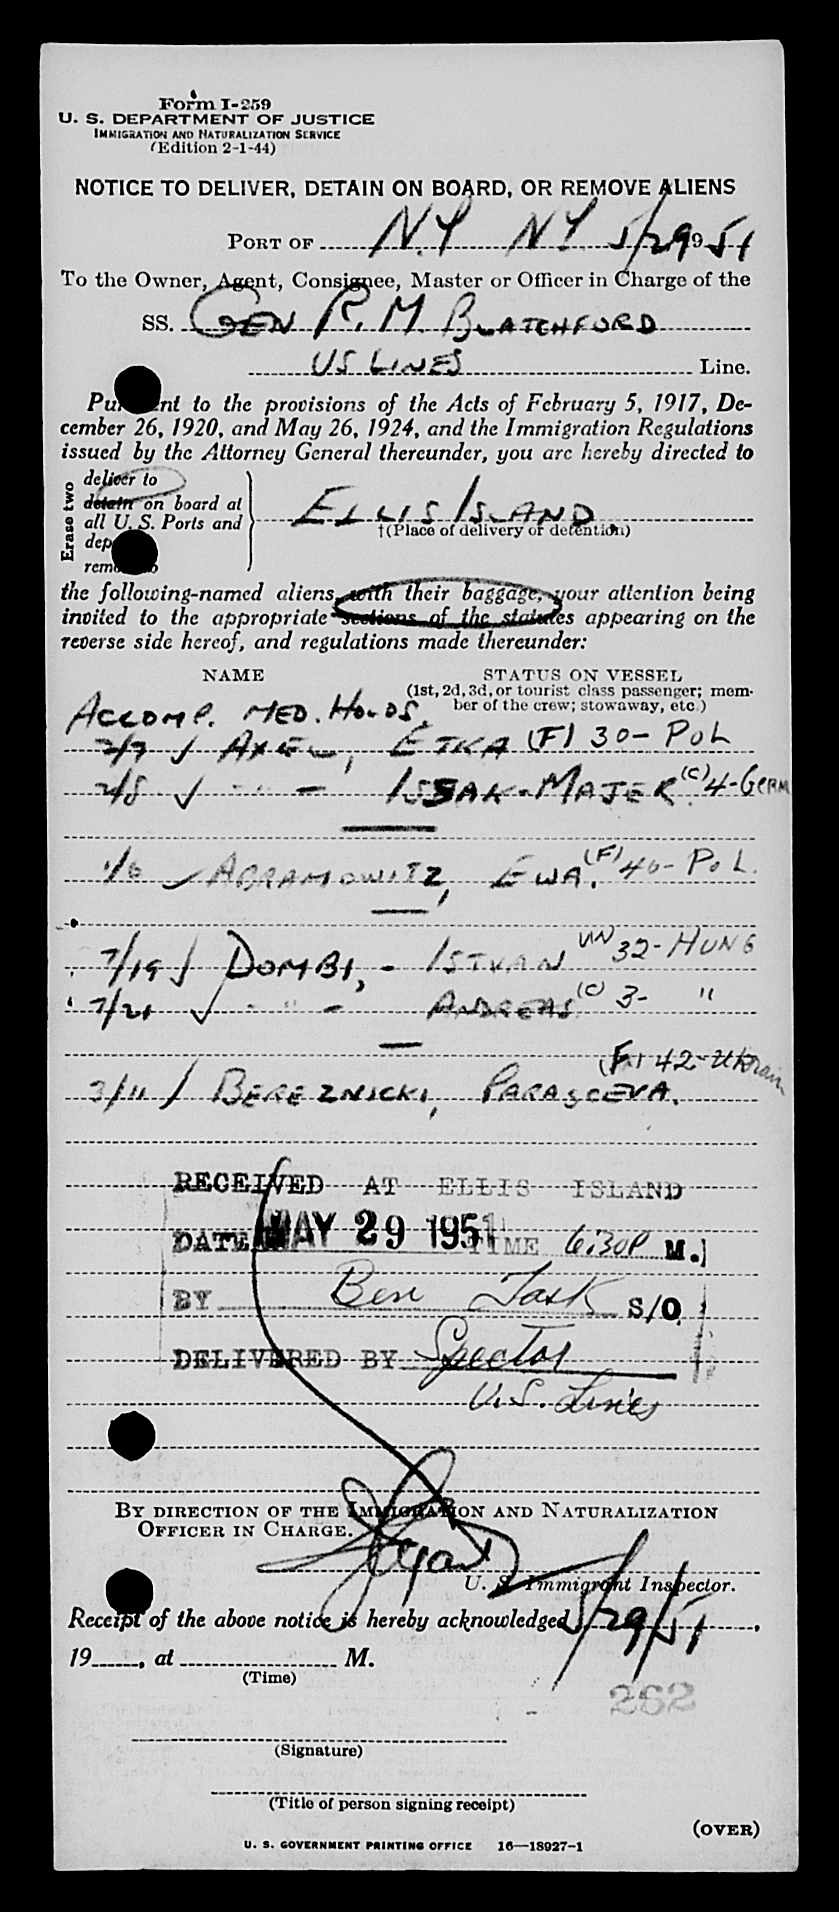 Form I-259
U. S. DEPARTMENT OF JUSTICE
IMMIGRATION AND NATURALIZATION SERVICE
(Edition 2-1-44)
NOTICE TO DELIVER, DETAIN ON BOARD, OR REMOVE ALIENS
PORT OF N.Y NY 5/29 1951
To the Owner, Agent, Consignee, Master or Officer in Charge of the
SS. GEN R. M. BLATCHFORD
US LINES Line.
Pursuant to the provisions of the Acts of February 5, 1917, De-
cember 26, 1920, and May 26, 1924, and the Immigration Regulations
issued by the Attorney General thereunder, you are hereby directed to
Erase two
deliver to
detain on board at
all U. S. Ports and
dep
remove to
ELLIS ISLAND
†(Place of delivery or detention)
the following-named aliens, with their baggage, your attention being
invited to the appropriate sections of the statutes appearing on the
reverse side hereof, and regulations made thereunder:
NAME STATUS ON VESSEL
(1st, 2d, 3d, or tourist class passenger; mem-
ber of the crew; stowaway, etc.)
ACCOMP. MED. HOLDS.
2/7 ✓ AXEL, ETKA (F) 30- POL
2/8 ✓ - " - ISSAK-MAJER (C) 4-GERM
1/6 ✓ ABRAMOWITZ, EWA. (F) 40- POL.
7/19 ✓ DOMBI, - ISTVAN 32-HUNG
7/21 ✓ - " - ANDREAS (C) 3- "
3/11 / BEREZNICKI, PARASCEVA. (F) 42-Ukrain
RECEIVED AT ELLIS ISLAND
DATE MAY 29 1951 TIME 6:30P M.
BY Ben Task S/O
DELIVERED BY Spector
U.S. Lines
BY DIRECTION OF THE IMMIGRATION AND NATURALIZATION
OFFICER IN CHARGE.
U. S. Immigrant Inspector.
Receipt of the above notice is hereby acknowledged 5/29/51,
19____, at ____ M.
(Time)
262
(Signature)
(Title of person signing receipt)
(OVER)
U. S. GOVERNMENT PRINTING OFFICE 16—18927-1